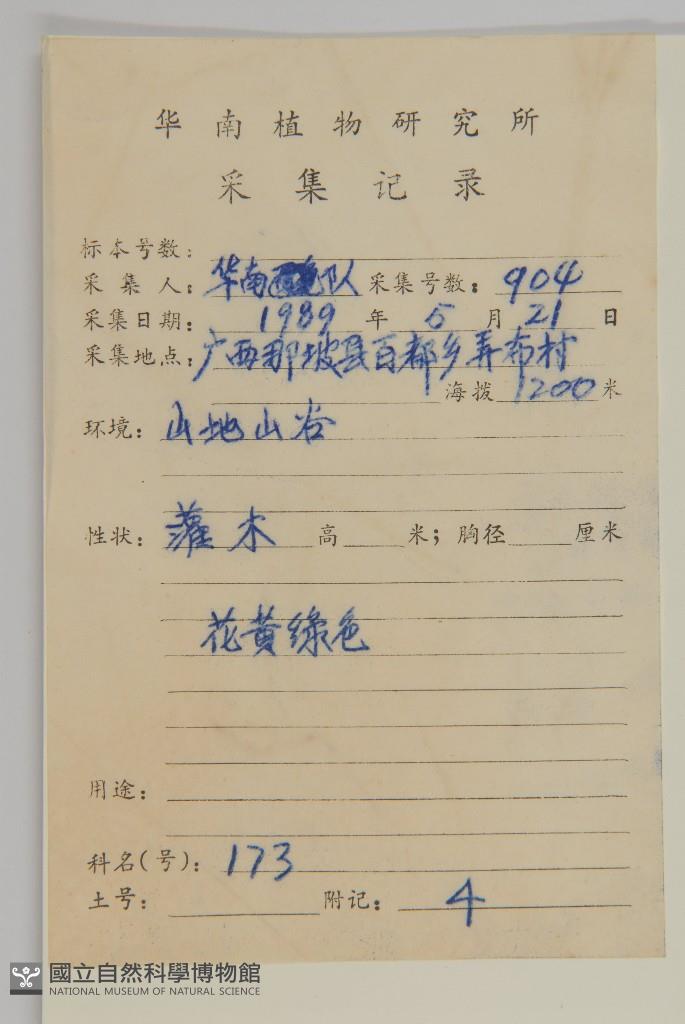 华南植物研究所
采集记录
标本号数：
采集人：华南队 采集号数：904
采集日期：1989年5月21日
采集地点：广西那坡县百都乡弄布村
海拨1200米
环境：山地山谷
性状：灌木 高 米；胸径 厘米
花黄绿色
用途：
科名(号)：173
土号： 附记：4
國立自然科學博物館
NATIONAL MUSEUM OF NATURAL SCIENCE